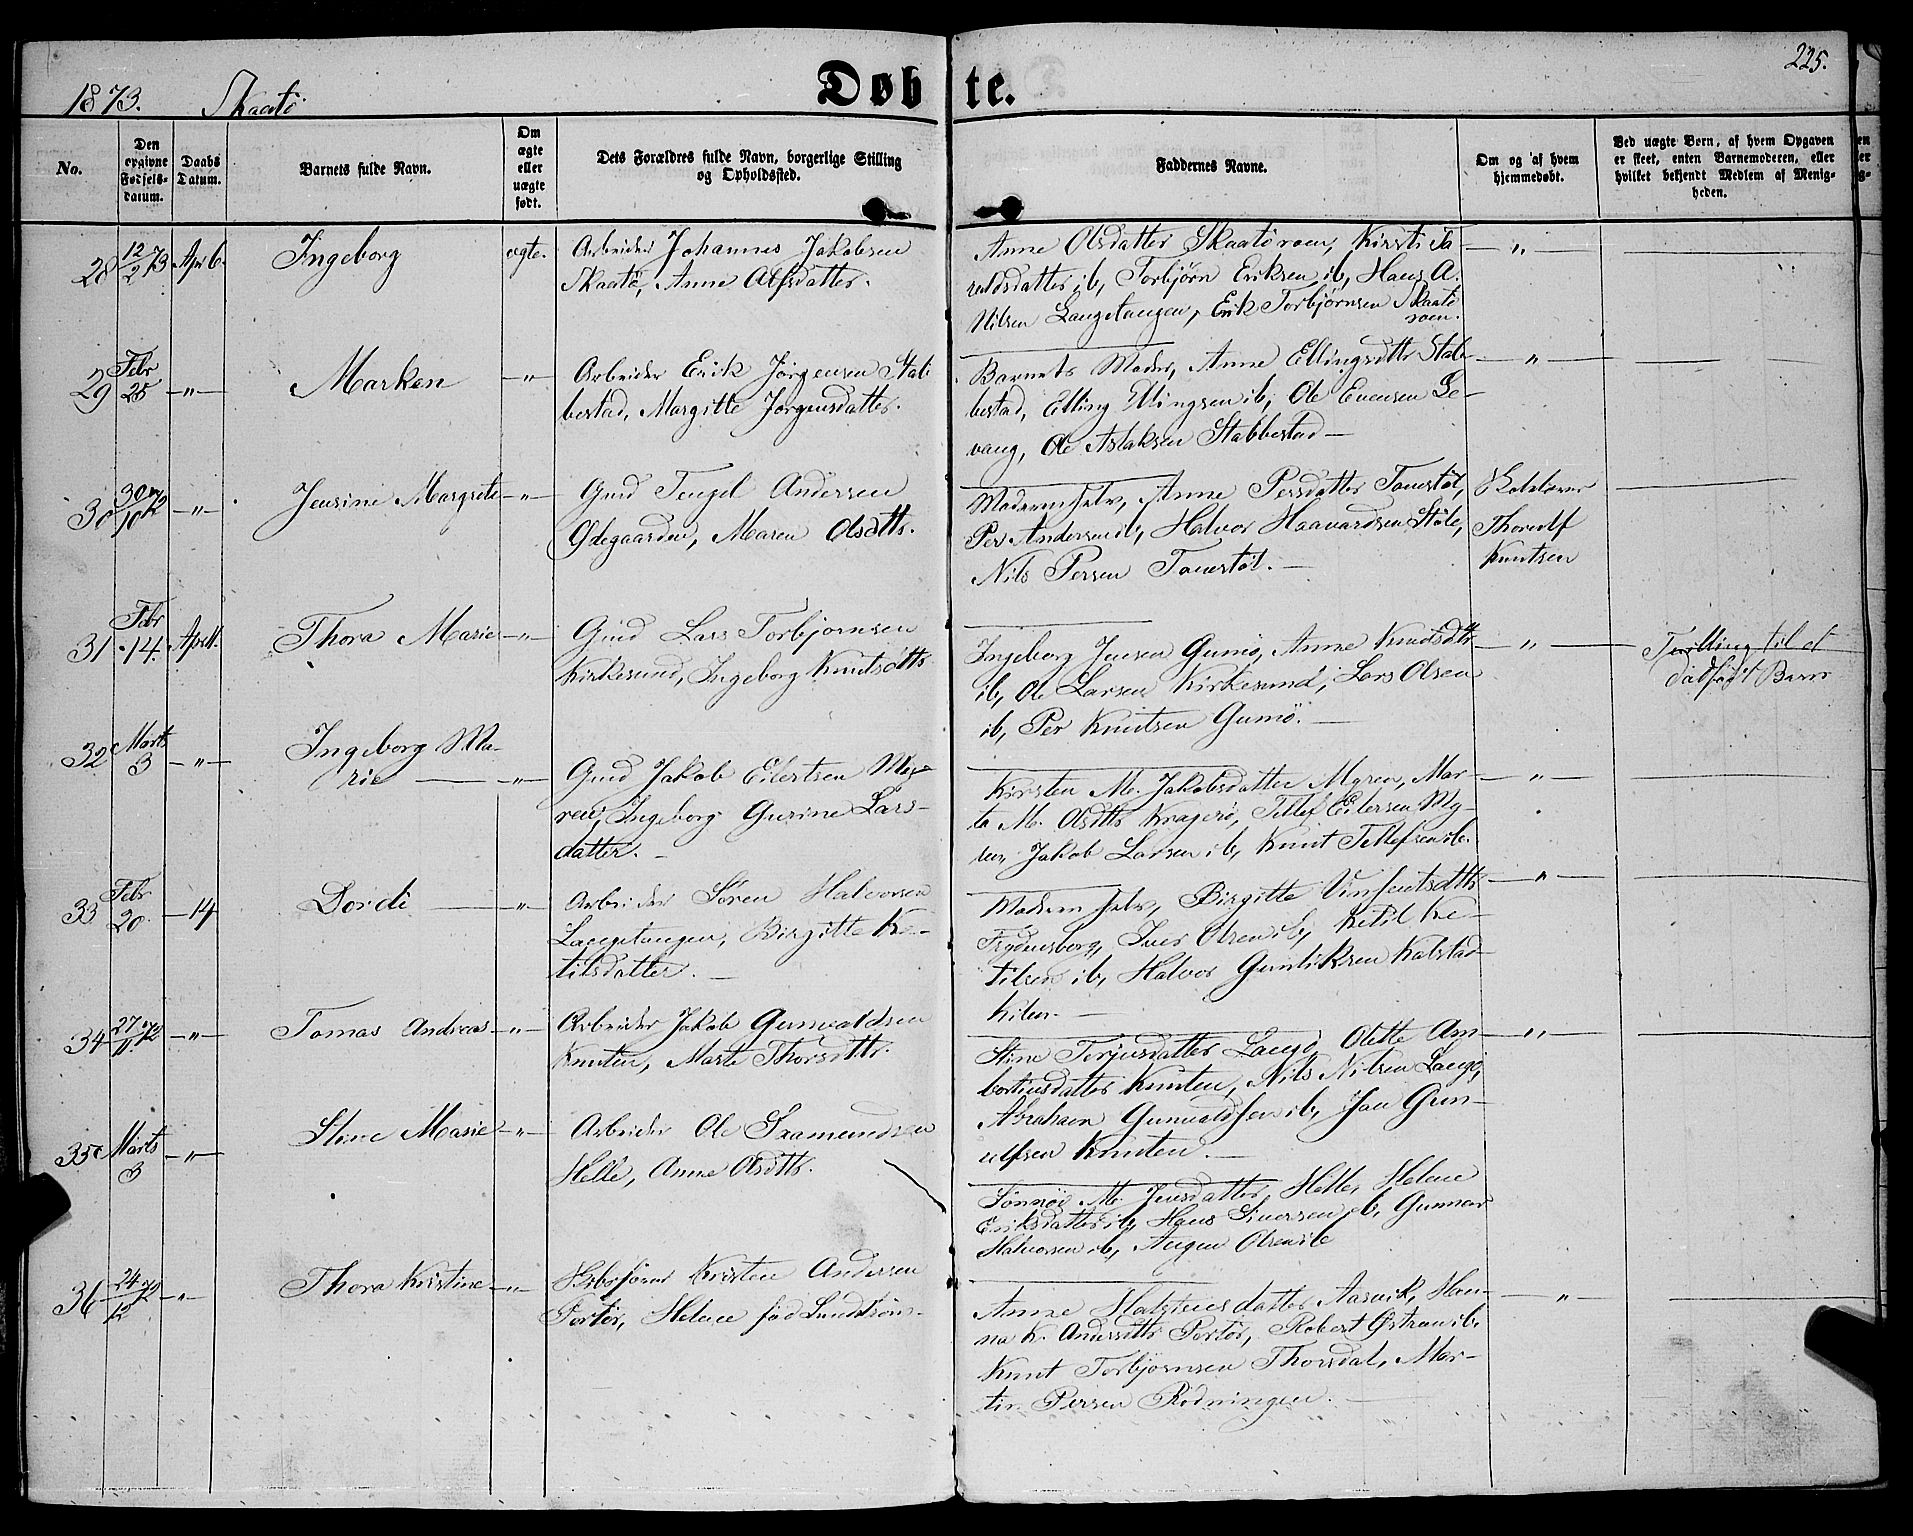 225.
1873. Skaatö
Døbte.
No.
Den opgivne Fødselsdatum.
Daabs Datum.
Barnets fulde Navn.
Om ægte eller uægte født.
Dets Forældres fulde Navn, borgerlige Stilling og Opholdssted.
Faddernes Navne.
Om og af hvem hjemmedøbt.
Ved uægte Børn, af hvem Opgaven er skeet, enten Barnemoderen, eller hvilket bekjendt Medlem af Menigheden.
28 12/2 73 Apr 6. Ingeborg ægte. Arbeider Johannes Jakobsen
Skaatö, Anne Olsdatter.
Anne Olsdatter Skaatöroen, Kirsti Ta-
raldsdatter ib, Torbjørn Eriksen ib, Hans A.
Nilsen Langetangen, Erik Torbjørnsen Skaatö
roen.
29 Febr 25 —"— Marken —"— Arbeider Erik Jørgensen Stab-
bestad, Margitte Jørgensdatter.
Barnets Moder, Anne Ellingsdttr Stab-
bestad, Elling Ellingsen ib, Ole Evensen Le-
vang, Ole Aslaksen Stabbestad —
30 30/10 72 —"— Jensine Margrete —"— Gmd Tengel Andersen
Ødegaarden, Maren Olsdttr.
Moderen selv, Anne Persdatter Tonstöl,
Per Andersen ib, Halvor Haavardsen Støle,
Nils Persen Tonstöl. —
Skolelærer
Thorulf
Knutsen
31 Febr 14. Apr 11. Thora Marie —"— Gmd Lars Torbjørnsen
Kirkesund, Ingeborg Knutsdttr
Ingeborg Jensen Gumö, Anne Knudsdttr
ib, Ole Larsen Kirkesund, Lars Olsen
ib, Per Knutsen Gumö. —
Tvilling til et
dödfødt Barn
32 Marts 3 —"— Ingeborg Ma-
rie —"— Gmd Jakob Eilertsen My-
ren, Ingeborg Gurine Lars-
datter. —
Kirsten M. Jakobsdatter Myren, Mar-
te M. Olsdttr Kragerö, Tellef Eilersen My-
ren, Jakob Larsen ib, Knut Tellefsen ib.
33 Febr 20 —14 Dordi —"— Arbeider Søren Halvorsen
Langetangen, Birgitte Ke-
tilsdatter. —
Moderen selv, Birgitte Vinsentsdttr
Frydensborg, Iver Olsen ib, Ketil Ke-
tilsen ib, Halvor Gunliksen Kalstad-
kilen. —
34 27/11 72 —"— Tomas Andreas —"— Arbeider Jakob Gunvaldsen
Knuten, Marte Thorsdttr.
Stine Terjusdatter Langö, Olette Am-
bortiusdatter Knuten, Nils Nilsen Langö,
Abraham Gunvaldsen ib, Jan Gun-
ulfsen Knuten. —
35 Marts 3 —"— Stine Marie —"— Arbeider Ole Sramundsen
Helle, Anne Olsdttr.
Sønnøv M. Jensdatter Helle, Helene
Eriksdatter ib, Hans Siversen ib, Gunnar
Halvorsen ib, Augen Olsen ib
36 24/12 72 —"— Thora Kristine —"— Husbesidder Kristen Andersen
Portör, Helene fød Lundström
Anne Halstensdatter Aasvik, Han-
na K. Andersdttr Portör, Robert Østran ib,
Knut Torbjørnsen Thorsdal, Mar-
tin Persen Rödningen. —